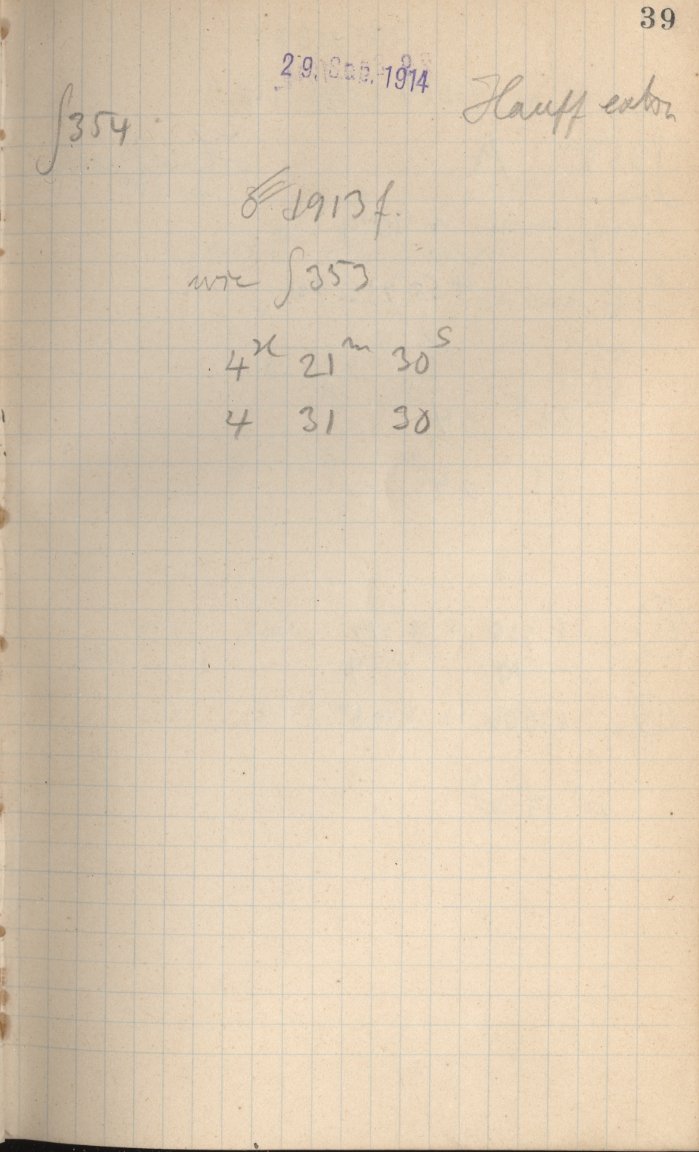 39
29. Sep. 1914
∫354
Hauff extra
☄ 1913 f.
wie ∫353
4ʰ 21ᵐ 30ˢ
4 31 30